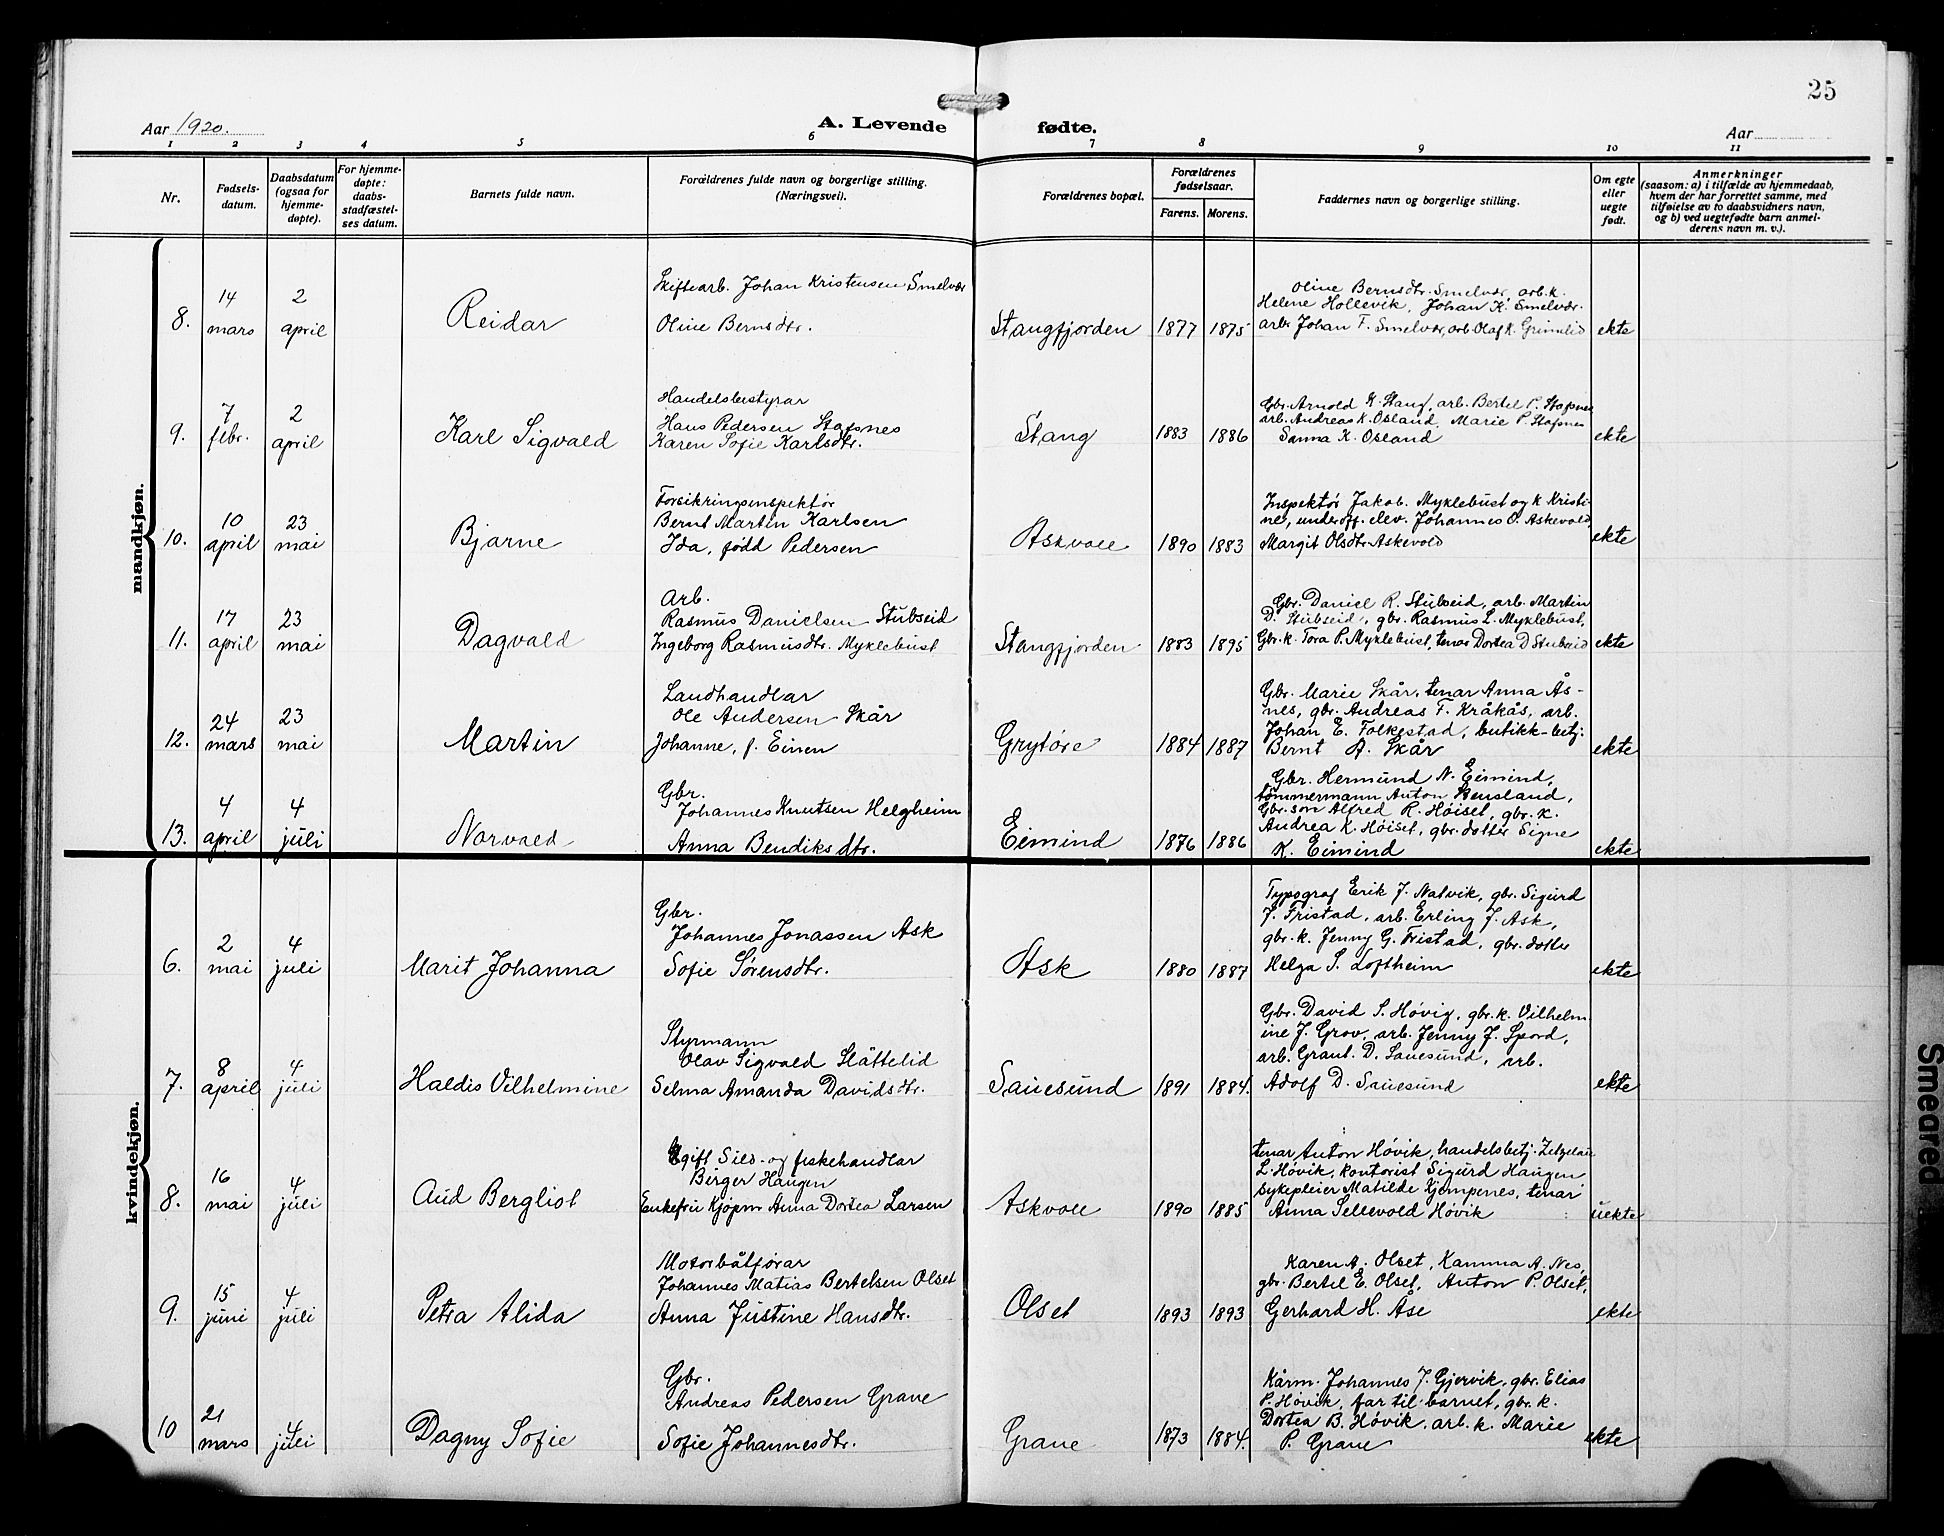 25
Aar 1920.
A. Levende fødte.
Aar
1 2 3 4 5 6 7 8 9 10 11
Nr.
Fødsels-
datum.
Daabsdatum
(ogsaa for
hjemme-
døpte).
For hjemme-
døpte:
daabs-
stadfæstel-
ses datum.
Barnets fulde navn.
Forældrenes fulde navn og borgerlige stilling.
(Næringsvei).
Forældrenes bopæl.
Forældrenes
fødselsaar.
Farens. Morens.
Faddernes navn og borgerlige stilling.
Om egte
eller
uegte
født.
Anmerkninger
(saasom: a) i tilfælde av hjemmedaab,
hvem der har forrettet samme, med
tilføielse av to daabsvidners navn,
og b) ved uegtefødte barn anmel-
derens navn m. v.).
mandkjøn.
8.
14
mars
2
april
Reidar
Skiftearb. Johan Kristensen Smelvær
Oline Berndsdtr.
Stangfjorden
1877
1875
Oline Berndsdtr. Smelvær, arb.k.
Helene Hollevik, Johan K. Smelvær.
arb. Johan T. Smelvær, arb. Olaf K. Grimelid
ekte
9.
7
febr.
2
april
Karl Sigvald
Handelsbestyrar
Hans Pedersen Stafsnes
Karen Sofie Karlsdtr.
Stang
1883
1886
Gbr. Arnold K. Stang, arb. Bertel P. Stafsnes
arb. Andreas K. Osland, Marie P. Stafsnes
Sanna K. Osland
ekte
10.
10
april
23
mai
Bjarne
Forsikringsinspektør
Bernt Martin Karlsen
Ida, født Pedersen
Askvoll
1890
1883
Inspektør Jakob Myklebust og k Kristi-
ne, underoff. elev. Johannes O. Askevold
Margit Olsdtr. Askevold
ekte
11.
17
april
23
mai
Dagvald
Arb.
Rasmus Danielsen Stubseid
Ingeborg Rasmusdtr. Myklebust
Stangfjorden
1883
1895
Gbr. Daniel R. Stubseid, arb. Martin
D. Stubseid, gbr. Rasmus L. Myklebust,
Gbr.k. Tora P. Myklebust, tenar Dortea D Stubseid
ekte
12.
24
mars
23
mai
Martin
Landhandlar
Ole Andersen Skår
Johanne, f. Einen
Grytøre
1884
1887
Gbr. Marie Skår, tenar Anna Ås-
nes, gbr. Andreas T. Kråkås, arb.
Johan E. Folkestad, butikk-betj:
Bernt A. Skår
ekte
13.
4
april
4
juli
Norvald
Gbr.
Johannes Knutsen Helgheim
Anna Bendiksdtr.
Eimind
1876
1886
Gbr. Hermund N. Eimind,
tømmermann Anton Hensland,
Gbr.son Alfred R. Høiset, gbr. k.
Andrea K. Høiset, gbr. dotter Signe
K. Eimind
ekte
kvindekjøn.
6.
2
mai
4
juli
Marit Johanna
Gbr.
Johannes Jonassen Ask
Sofie Sørensdtr.
Ask
1880
1887
Typograf Erik J. Natvik, gbr. Sigurd
J. Tristad, arb. Erling J. Ask,
gbr. k. Jenny G. Tristad, gbr. dotter
Helga S. Loftheim
ekte
7.
8
april
4
juli
Haldis Vilhelmine
Styrmann
Olav Sigvald Slåttelid
Selma Amanda Davidsdtr.
Sauesund
1891
1884.
Gbr. David S. Høvig, gbr. k. Vilhelm
ine J. Grov, arb. Jenny J. Spord,
arb. Graut. D. Sauesund, arb.
Adolf D. Sauesund
ekte
8.
16
mai
4
juli
Aud Bergliot
Ugift Sild- og fiskehandlar
Birger Haugen
Enkefru Kjøpm Anna Dortea Larsen
Askvoll
1890
1885
tenar Anton Høvik, handelsbetj.
L. Høvik, kontorist Sigurd Haugen
sykepleier Matilde Kjempenes, tenar
Anna Sellevold Høvik
uekte
9.
15
juni
4
juli
Petra Alida
Motorbåtførar
Johannes Matias Bertelsen Olset
Anna Justine Hansdtr.
Olset
1893
1893
Karen A. Olset, Kamma A. Nes,
gbr. Bertil E. Olset, Anton P. Olset,
Gerhard H. Åse
ekte
10
21
mars
4
juli
Dagny Sofie
Gbr.
Andreas Pedersen Grave
Sofie Johannesdtr.
Grane
1873
1884.
Kårm. Johannes J. Gjervik, gbr. Elias
P. Høvik, far til barnet, gbr. k.
Dortea B. Høvik, arb. k. Marie
P. Grane
ekte
Smeared